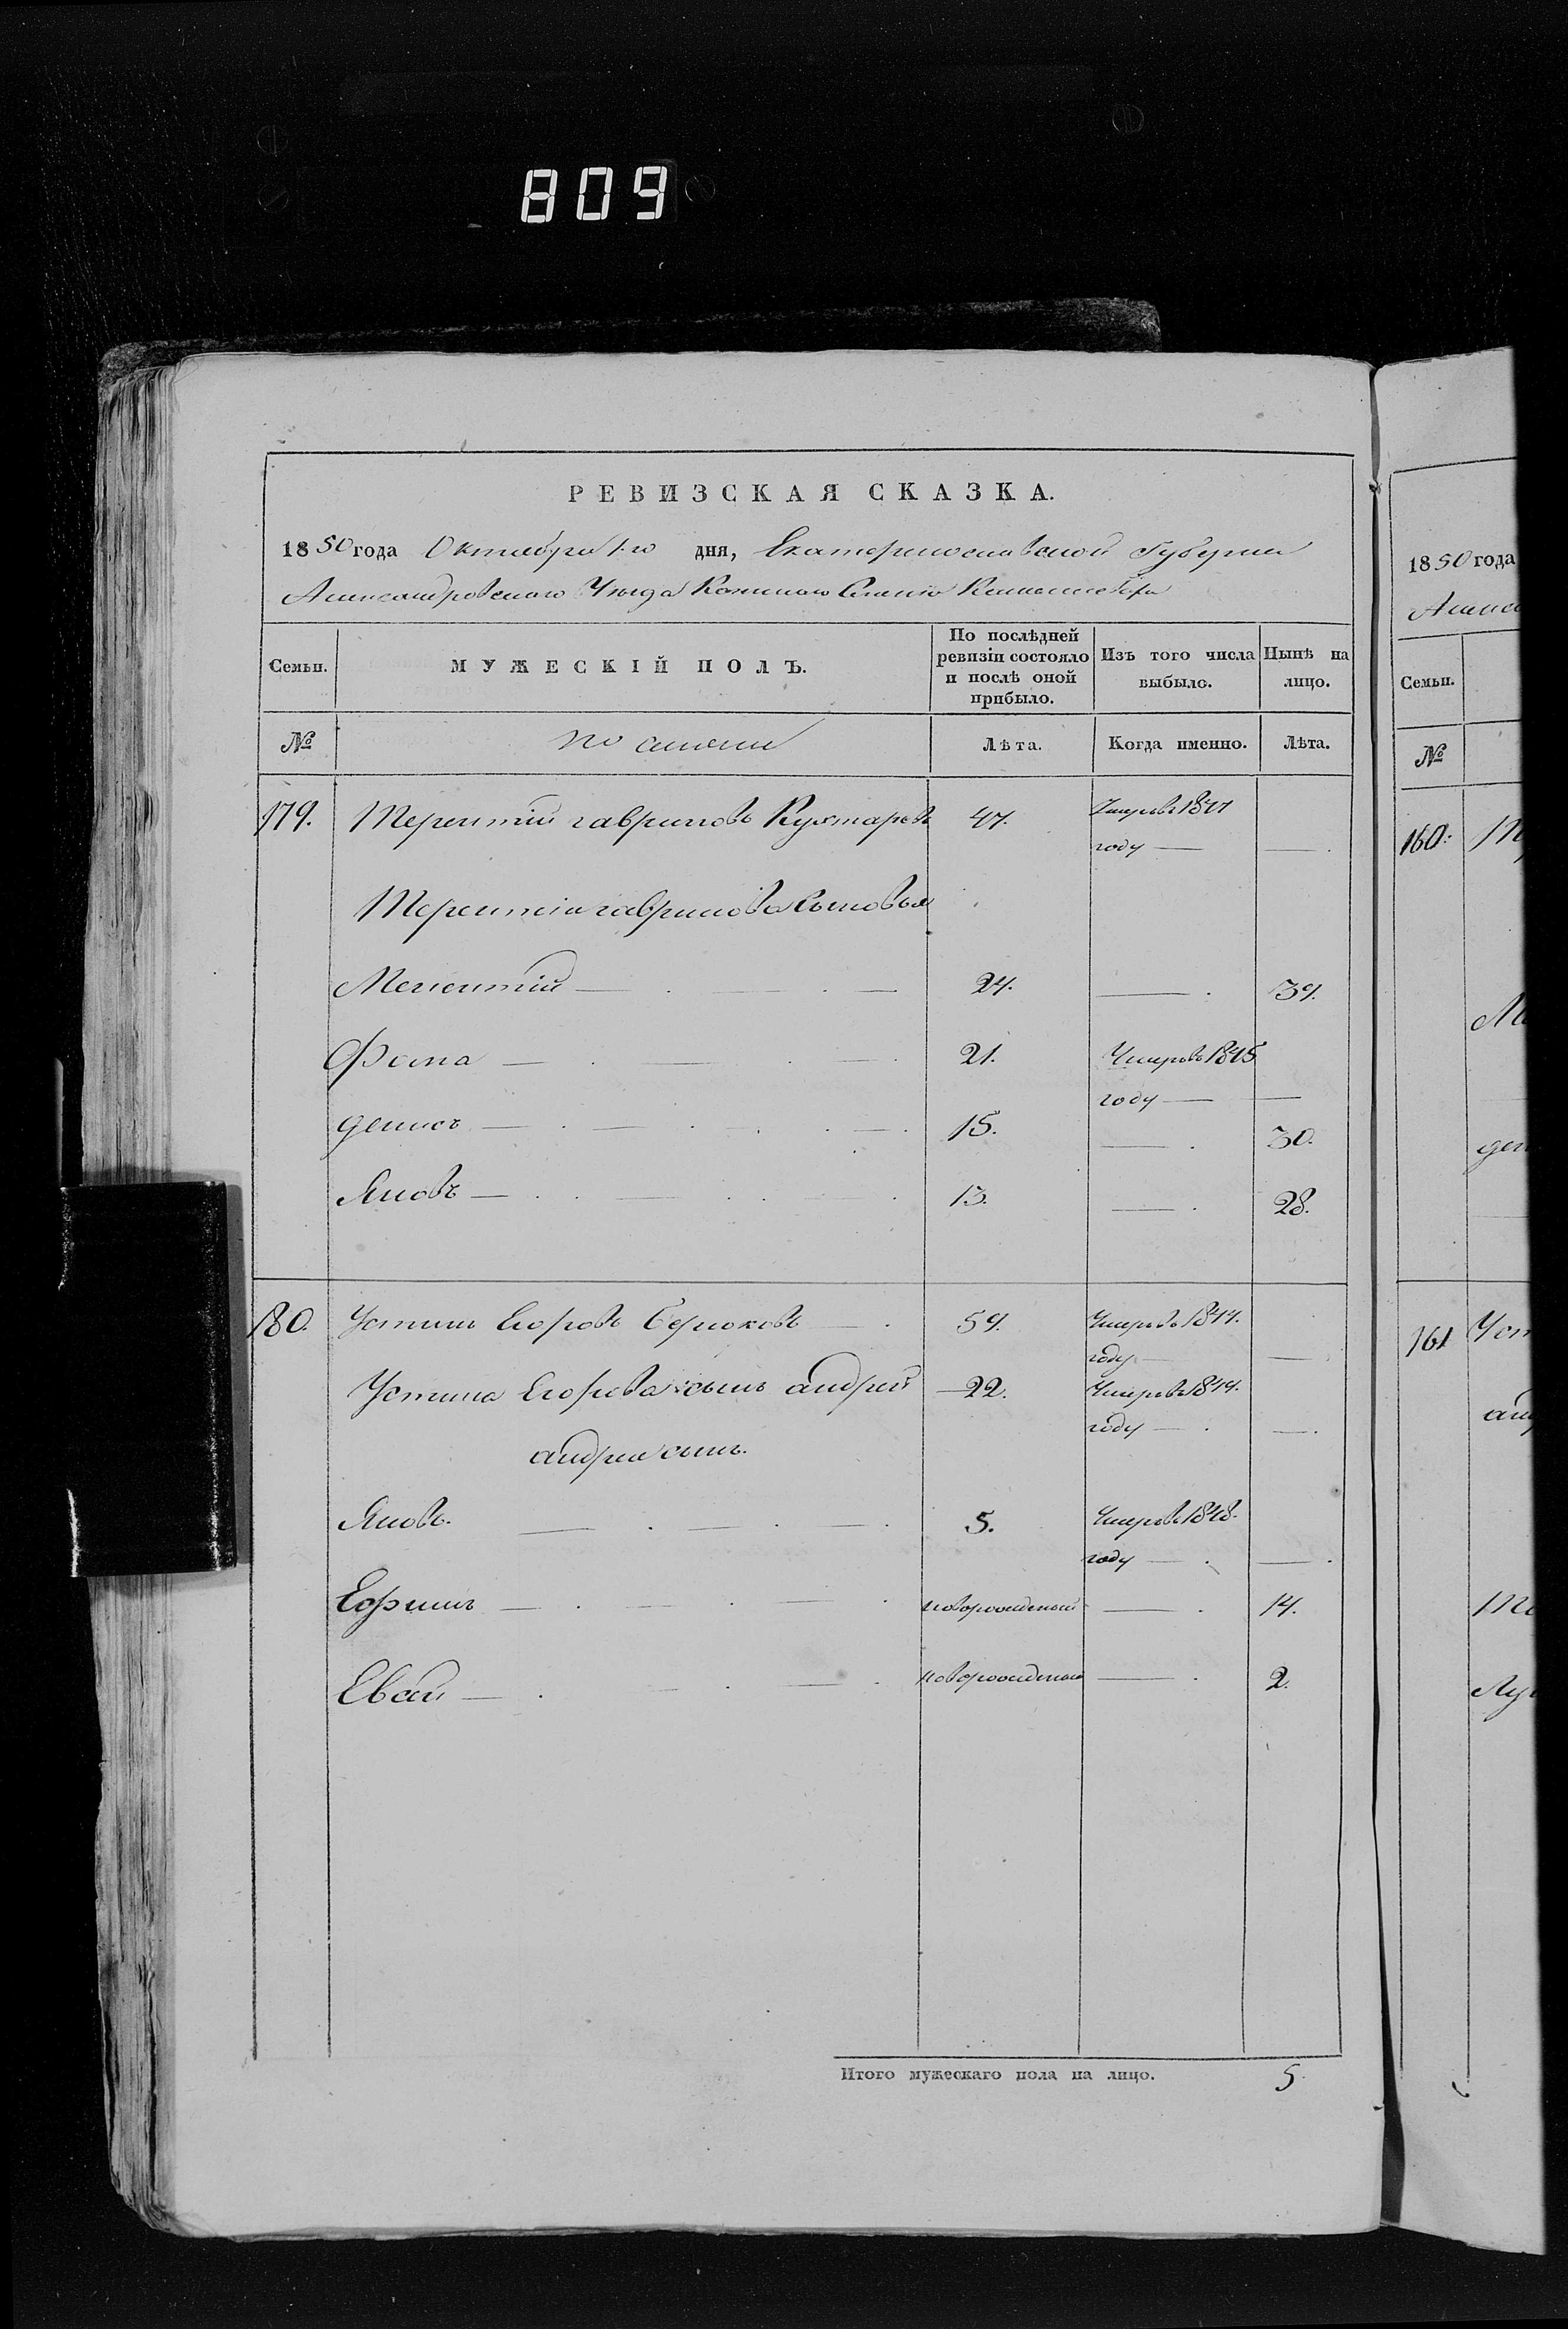 809
РЕВИЗСКАЯ СКАЗКА.
1850 года Октября 1го дня, Екатеринославской Губернии
Александровского Уезда
Семьи. МУЖЕСКІЙ ПОЛЪ. По послѣдней ревизіи состояло и послѣ оной прибыло. Изъ того числа выбыло. Нынѣ на лицо.
№ Лѣта. Когда именно. Лѣта.
179. Терентій гавриловъ Кухтаровъ 47. Умеръ въ
году — — .
Терентія гаврилова Сыновья
Мелентій — . — . — 24. — . 39.
Фома — . — . — . 21. Умеръ въ 1845
году — —
денисъ — . — . — . — . 15. — . 30.
Яковъ — . . — . . — . 13. — . 28.
180. Устинъ Егоровъ Серюковъ — . 59. Умеръ въ 1844.
году — — .
Устина Егорова сынъ андрей — 22. Умеръ въ 1844.
году — . — .
андрея сынъ.
Яковъ. — . — . — . 5. Умеръ въ 1848.
году — . — .
Ефимъ — . — . — . новорожденный — . 14.
Евсей — . — . — . новорожденный — . 2.
Итого мужескаго пола на лицо. 5.
1850 года
Семьи.
№
160:
161